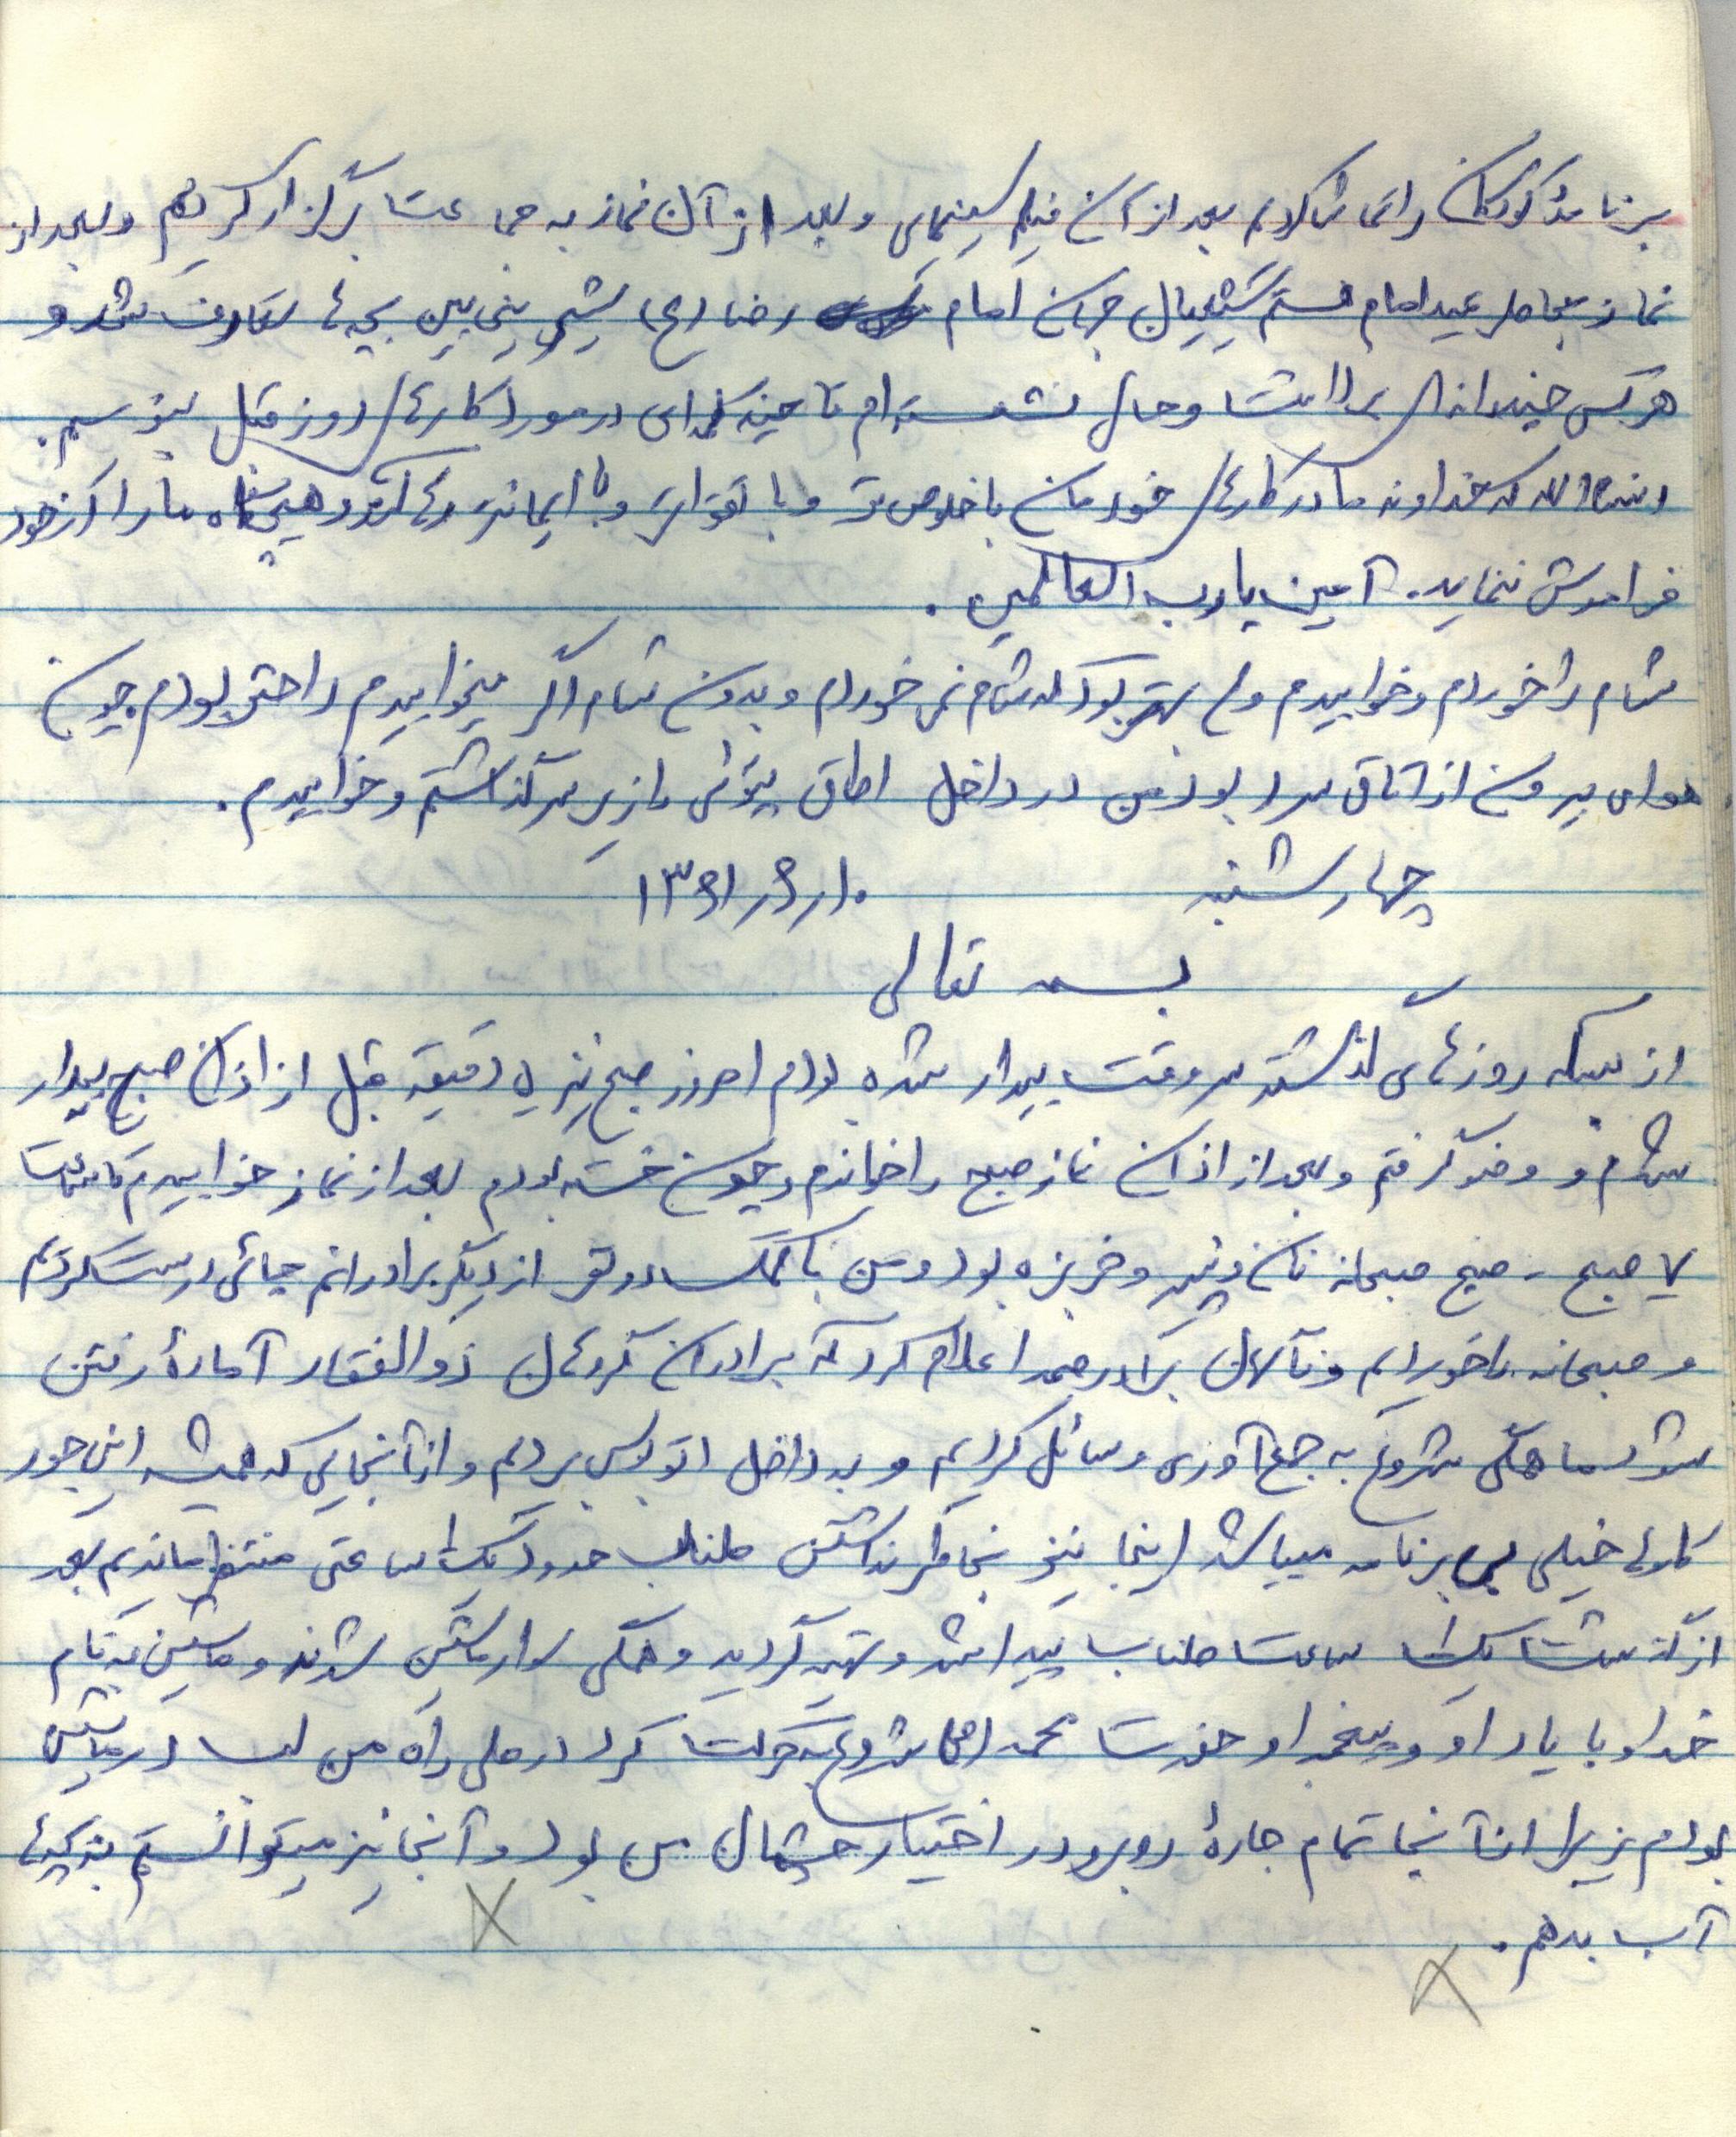 برنامهٔ کودکان را تماشا کردیم بعد از آن فیلم سینمای و بعد از آن نماز به جماعت برگزار کردیم و بعد از
نماز بخاطر عید امام هستم شیعیان جهان امام رضا (ع) شیرینی بین بچه‌ها تعارف شد و
هر کس چند دانه ای برداشت و حال نشسته‌ام تا چند کلمه‌ای در مورد کارهای روز قبل بنویسم.
انشاءالله که خداوند ما در کارهای خودمان با خلوص‌تر و با تقواتر و با ایمانتر و هیچگاه ما را از خود
فراموش ننماید. آمین یا رب العالمین.
شام را خوردم و خوابیدم ولی بهتر بود که شام نمی‌خوردم و بدون شام اگر میخوابیدم راحتر بودم چون
هوای بیرون از اتاق سرد بود من در داخل اطاق پتوئی را زیر سر گذاشتم و خوابیدم.
چهارشنبه ۱۳۶۱/۶/۱۰
بسمه تعالی
از بسکه روزهای گذشته سر وقت بیدار شده بودم امروز صبح نیز ۵ دقیقه قبل از اذان صبح بیدار
شدم و وضو گرفتم و بعد از اذان نماز صبح را خواندم و چون خسته بودم بعد از نماز خوابیدم تا ساعت
۷ صبح - صبح صبحانه نان و پنیر و خربزه بود و من با کمک دو نفر از دیگر برادرانم چائی درست کردیم
و صبحانه را خوردیم و ناگهان برادر صمد اعلام کرد که برادران گردهان ذوالفقار آمادهٔ رفتن
شوند ما همگی شروع به جمع‌آوری وسائل کردیم و به داخل اتوبوس بردیم و از آنجایی که همیشه این جور
کارها خیلی بی برنامه میباشد اینجا نیز بخاطر نداشتن طناب حدود یک ساعتی منتظر ماندیم بعد
از گذشت یک ساعت طناب پیدا شد و تهیه گردید و همگی سوار ماشین شدند و ماشین به نام
خدا و با یاد او و پیغمبر او حضرت محمد (ص) شروع به حرکت کرد در طی راه من لب در ماشین
بودم زیرا از آنجا تمام جادهٔ روبرو در اختیار چشمان من بود و آنجا نیز میتوانستم به بچه‌ها
آب بدهم.